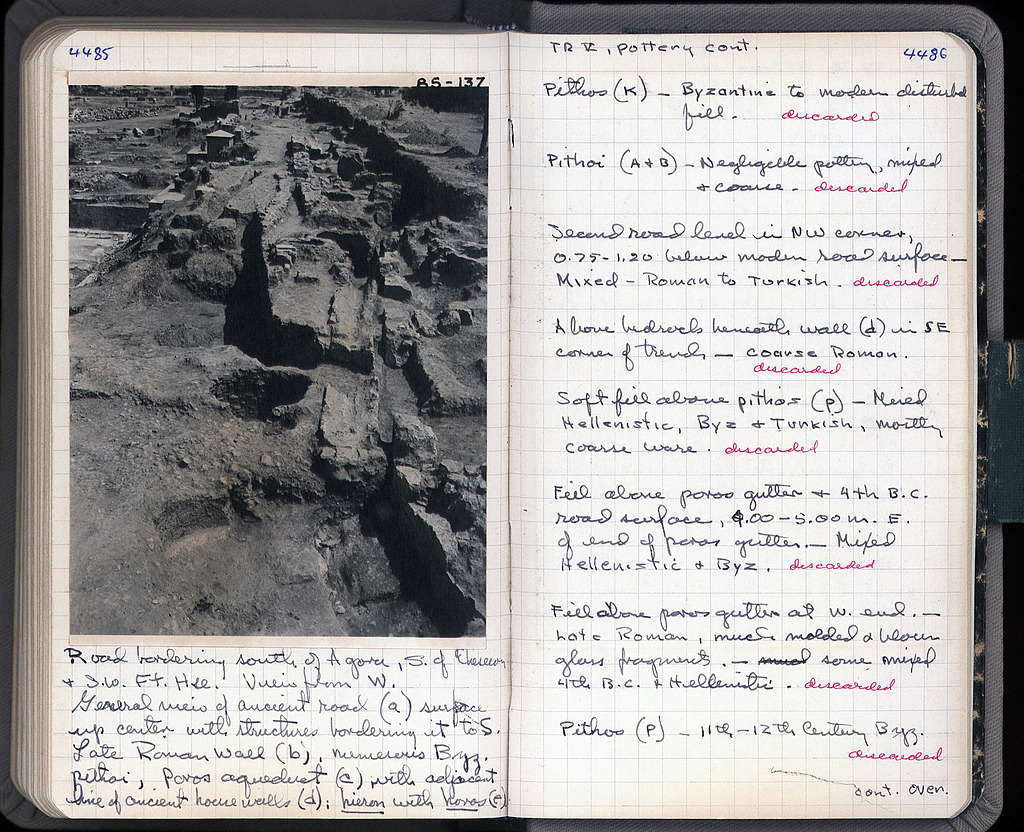 4485
85-137
Road bordering south of Agora, S. of Theseion
+ S.W. Ft. Hse. View from W.
General view of ancient road (a) surface
up center with structures bordering it to S.
Late Roman wall (b), numerous Byz.
pithoi, Poros aqueduct (c) with adjacent
line of ancient house walls (d); hieron with horos (e)
TR V, pottery cont.
4486
Pithos (K) – Byzantine to modern disturbed
fill. discarded
Pithoi (A+B) – Negligible pottery, mixed
+ coarse. discarded
Second road level in NW corner,
0.75-1.20 below modern road surface –
Mixed – Roman to Turkish. discarded
Above bedrock beneath wall (d) in SE
corner of trench – coarse Roman.
discarded
Soft fill above pithos (P) – Mixed
Hellenistic, Byz + Turkish, mostly
coarse ware. discarded
Fill above poros gutter + 4th B.C.
road surface, 4.00-5.00 m. E.
of end of poros gutter. – Mixed
Hellenistic + Byz. discarded
Fill above poros gutter at W. end. –
late Roman, much molded & blown
glass fragments. – some mixed
4th B.C. + Hellenistic. discarded
Pithos (P) – 11th-12th Century Byz.
discarded
cont. over.